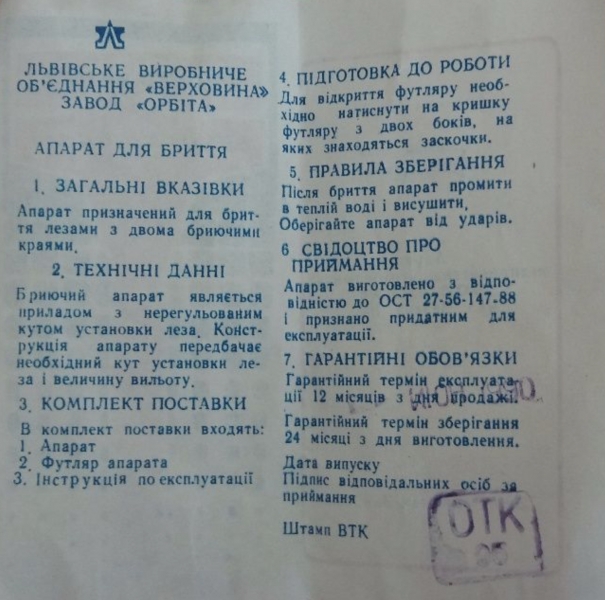 ЛЬВІВСЬКЕ ВИРОБНИЧЕ
ОБ'ЄДНАННЯ «ВЕРХОВИНА»
ЗАВОД «ОРБІТА»
АПАРАТ ДЛЯ БРИТТЯ
1. ЗАГАЛЬНІ ВКАЗІВКИ
Апарат призначений для брит-
тя лезами з двома бриючими
краями.
2. ТЕХНІЧНІ ДАННІ
Бриючий апарат являється
приладом з нерегульованим
кутом установки леза. Конст-
рукція апарату передбачає
необхідний кут установки ле-
за і величину вильоту.
3. КОМПЛЕКТ ПОСТАВКИ
В комплект поставки входять:
1. Апарат
2. Футляр апарата
3. Інструкція по експлуатації
4. ПІДГОТОВКА ДО РОБОТИ
Для відкриття футляру необ-
хідно натиснути на кришку
футляру з двох боків, на
яких знаходяться заскочки.
5. ПРАВИЛА ЗБЕРІГАННЯ
Після бриття апарат промити
в теплій воді і висушити,
Оберігайте апарат від ударів.
6 СВІДОЦТВО ПРО
ПРИЙМАННЯ
Апарат виготовлено з відпо-
відністю до ОСТ 27-56-147-88
і признано придатним для
експлуатації.
7. ГАРАНТІЙНІ ОБОВ'ЯЗКИ
Гарантійний термін експлуата-
ції 12 місяців з дня продажі.
Гарантійний термін зберігання
24 місяці з дня виготовлення.
Дата випуску
Підпис відповідальних осіб за
приймання
Штамп ВТК
ОТК